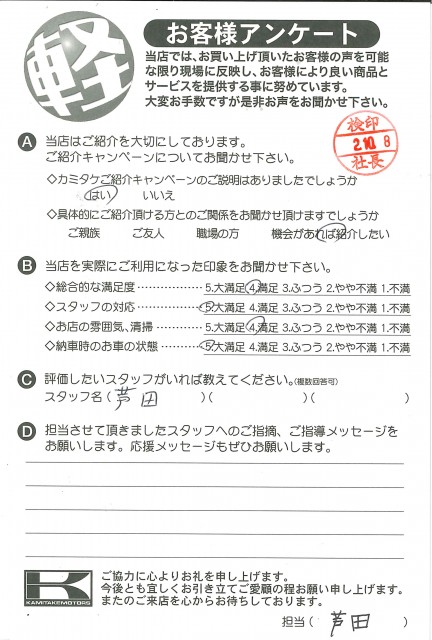 軽
お客様アンケート
当店では、お買い上げ頂いたお客様の声を可能
な限り現場に反映し、お客様により良い商品と
サービスを提供する事に努めています。
大変お手数ですが是非お声をお聞かせ下さい。
検印
2.10.8
社長
A 当店はご紹介を大切にしております。
ご紹介キャンペーンについてお聞かせ下さい。
◇カミタケご紹介キャンペーンのご説明はありましたでしょうか
はい いいえ
◇具体的にご紹介頂ける方とのご関係をお聞かせ頂けますでしょうか
ご親族 ご友人 職場の方 機会があれば紹介したい
B 当店を実際にご利用になった印象をお聞かせ下さい。
◇総合的な満足度 ・・・・・・・・・・・・・ 5.大満足 4.満足 3.ふつう 2.やや不満 1.不満
◇スタッフの対応 ・・・・・・・・・・・・・ 5.大満足 4.満足 3.ふつう 2.やや不満 1.不満
◇お店の雰囲気、清掃 ・・・・・・・・ 5.大満足 4.満足 3.ふつう 2.やや不満 1.不満
◇納車時のお車の状態 ・・・・・・・・ 5.大満足 4.満足 3.ふつう 2.やや不満 1.不満
C 評価したいスタッフがいれば教えてください。(複数回答可)
スタッフ名 ( 芦田 ) ( ) ( )
D 担当させて頂きましたスタッフへのご指摘、ご指導メッセージを
お願いします。応援メッセージもぜひお願いします。
K
KAMITAKEMOTORS
ご協力に心よりお礼を申し上げます。
今後とも宜しくお引き立てご愛顧の程お願い申し上げます。
またのご来店を心からお待ちしております。
担当 ( 芦田 )